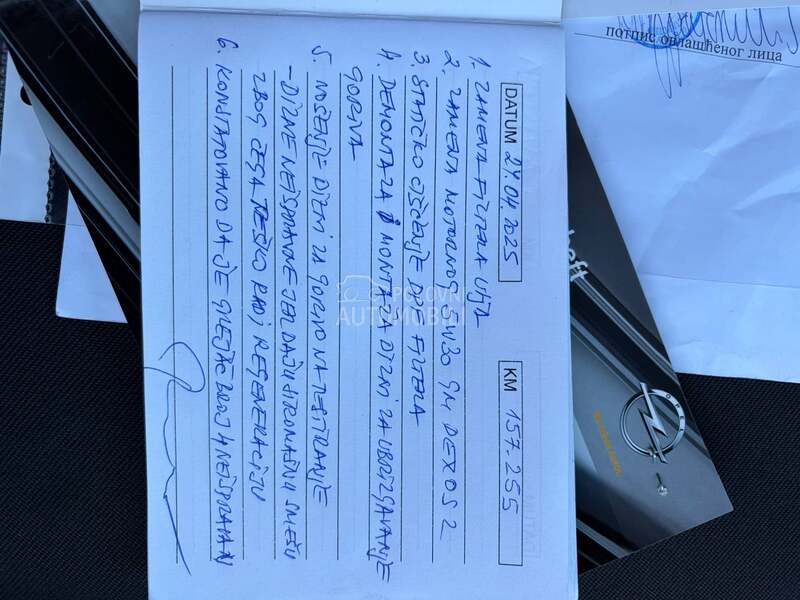 DATUM 24.04.2025 KM 157.255
1. ZAMENA FILTERA ULJA
2. ZAMENA MOTORNOG 5W30 GM DEXOS 2
3. STATIČKO ČIŠĆENJE DPF FILTERA
4. DEMONTAŽA I MONTAŽA DIZNI ZA UBRIZGAVANJE
GORIVA
5. NOŠENJE DIZNI ZA GORIVO NA TESTIRANJE
- DIZNE NEISPRAVNE JER DAJU SIROMAŠNU SMEŠU
ZBOG ČEGA TEŠKO RADI REGENERACIJU
6. KONSTATOVANO DA JE GREJAČ BROJ 4 NEISPRAVAN
потпис овлашћеног лица
POLOVNI
AUTOMOBILI
OPEL